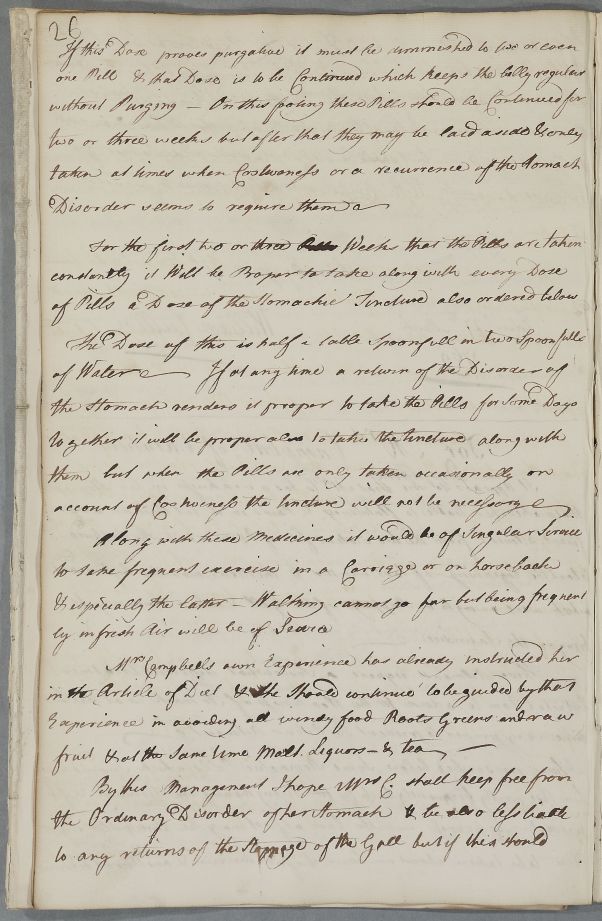 26
If this Dose proves purgative it must be diminished to two or even
one Pill & that Dose is to be Continued which keeps the belly regular
without Purging — On this footing these Pills should be Continued for
two or three weeks but after that they may be laid aside & only
taken at times when Costiveness or a recurrence of the Stomach
Disorder seems to require them
For the first two or three Weeks that the Pills are taken
constantly it Will be Proper to take along with every Dose
of Pills a Dose of the Stomachic Tincture also ordered below
The Dose of this is half a table Spoonfull in two Spoonfulls
of Water — If at any time a return of the Disorder of
the Stomach renders it proper to take the Pills for Some Days
together it will be proper also to take the tincture along with
them but when the Pills are only taken occasionally on
account of Costiveness the tincture will not be necessary
Along with these Medicines it would be of Singular Service
to take frequent exercise in a Carriage or on horseback
& especially the latter — Walking cannot go far but being frequent
ly in fresh Air will be of Service
Mrs Campbells own Experience has already instructed her
in the Article of Diet & She Should continue to be guided by that
Experience in avoiding all windy food Roots Greens and raw
fruit & at the Same time Malt Liquors — & tea —
By this Management I hope Mrs C. shall keep free from
the Ordinary Disorder of her Stomach & be also less liable
to any returns of the Stoppage of the Gall but if this should